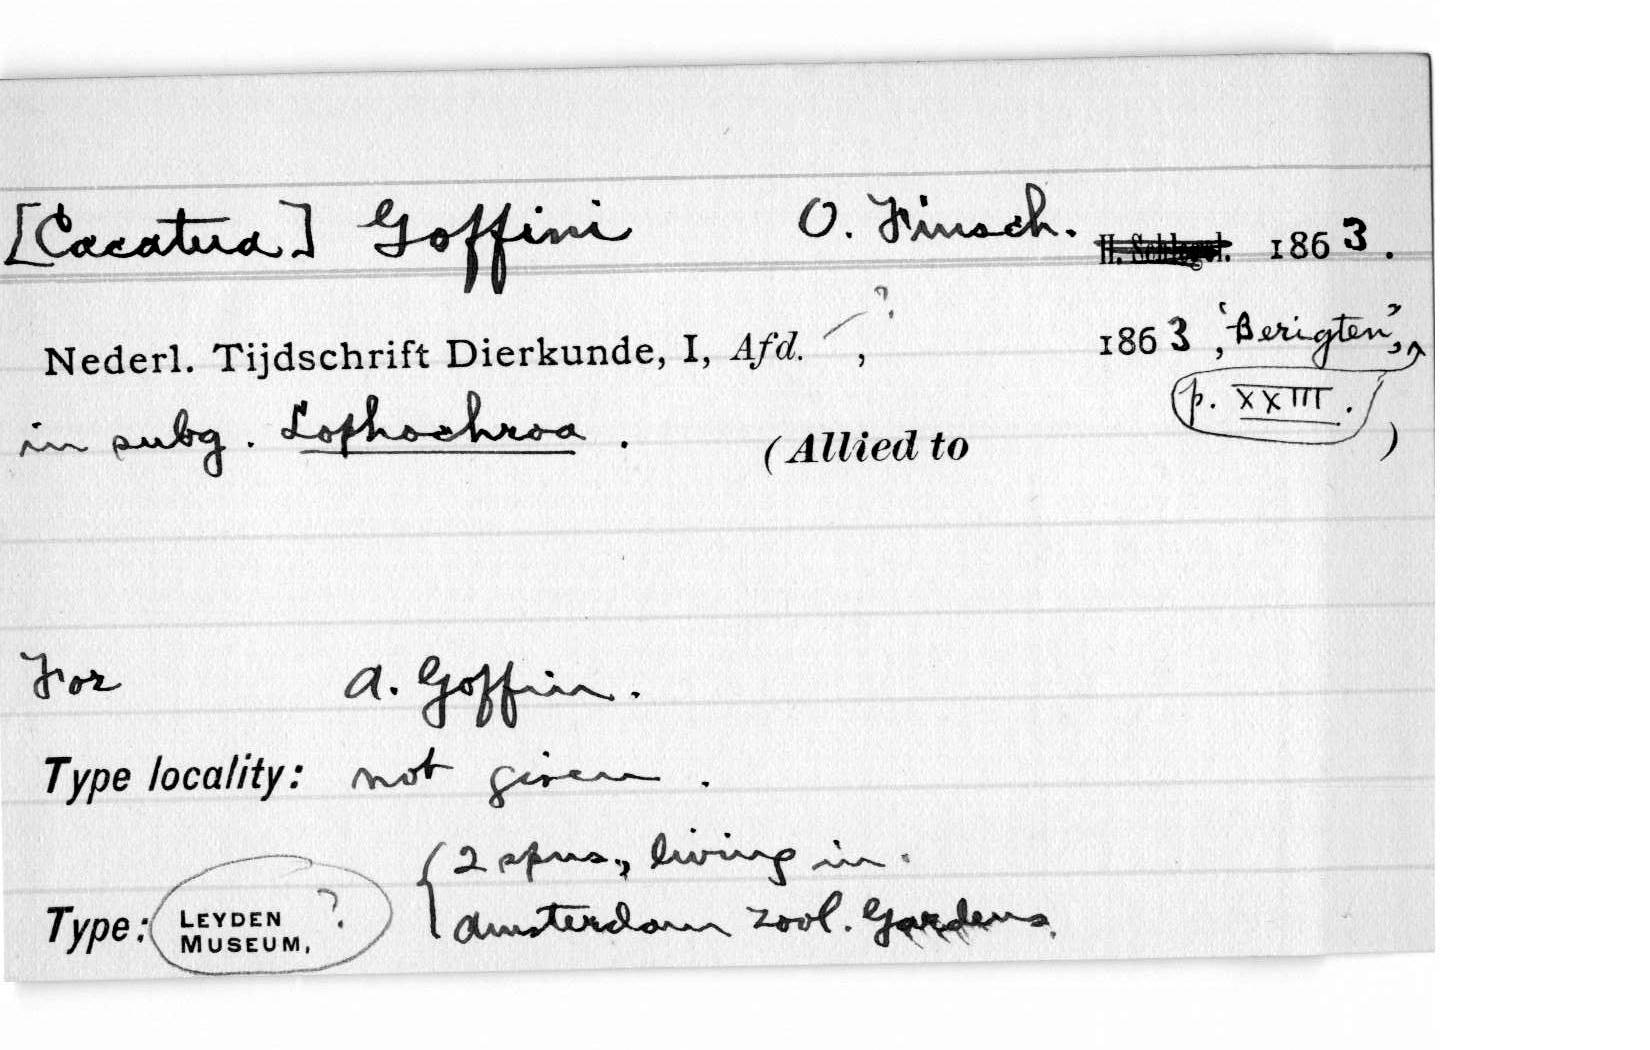 [Cacatua] Goffini O. Finsch. H. Schlegel. 1863.
Nederl. Tijdschrift Dierkunde, I, Afd. ?, 1863, 'Berigten',
p. XXIII.
in subg. Lophochroa. (Allied to )
For A. Goffin.
Type locality: not given.
Type: LEYDEN MUSEUM, ? { 2 spns., living in
Amsterdam Zool. Gardens.